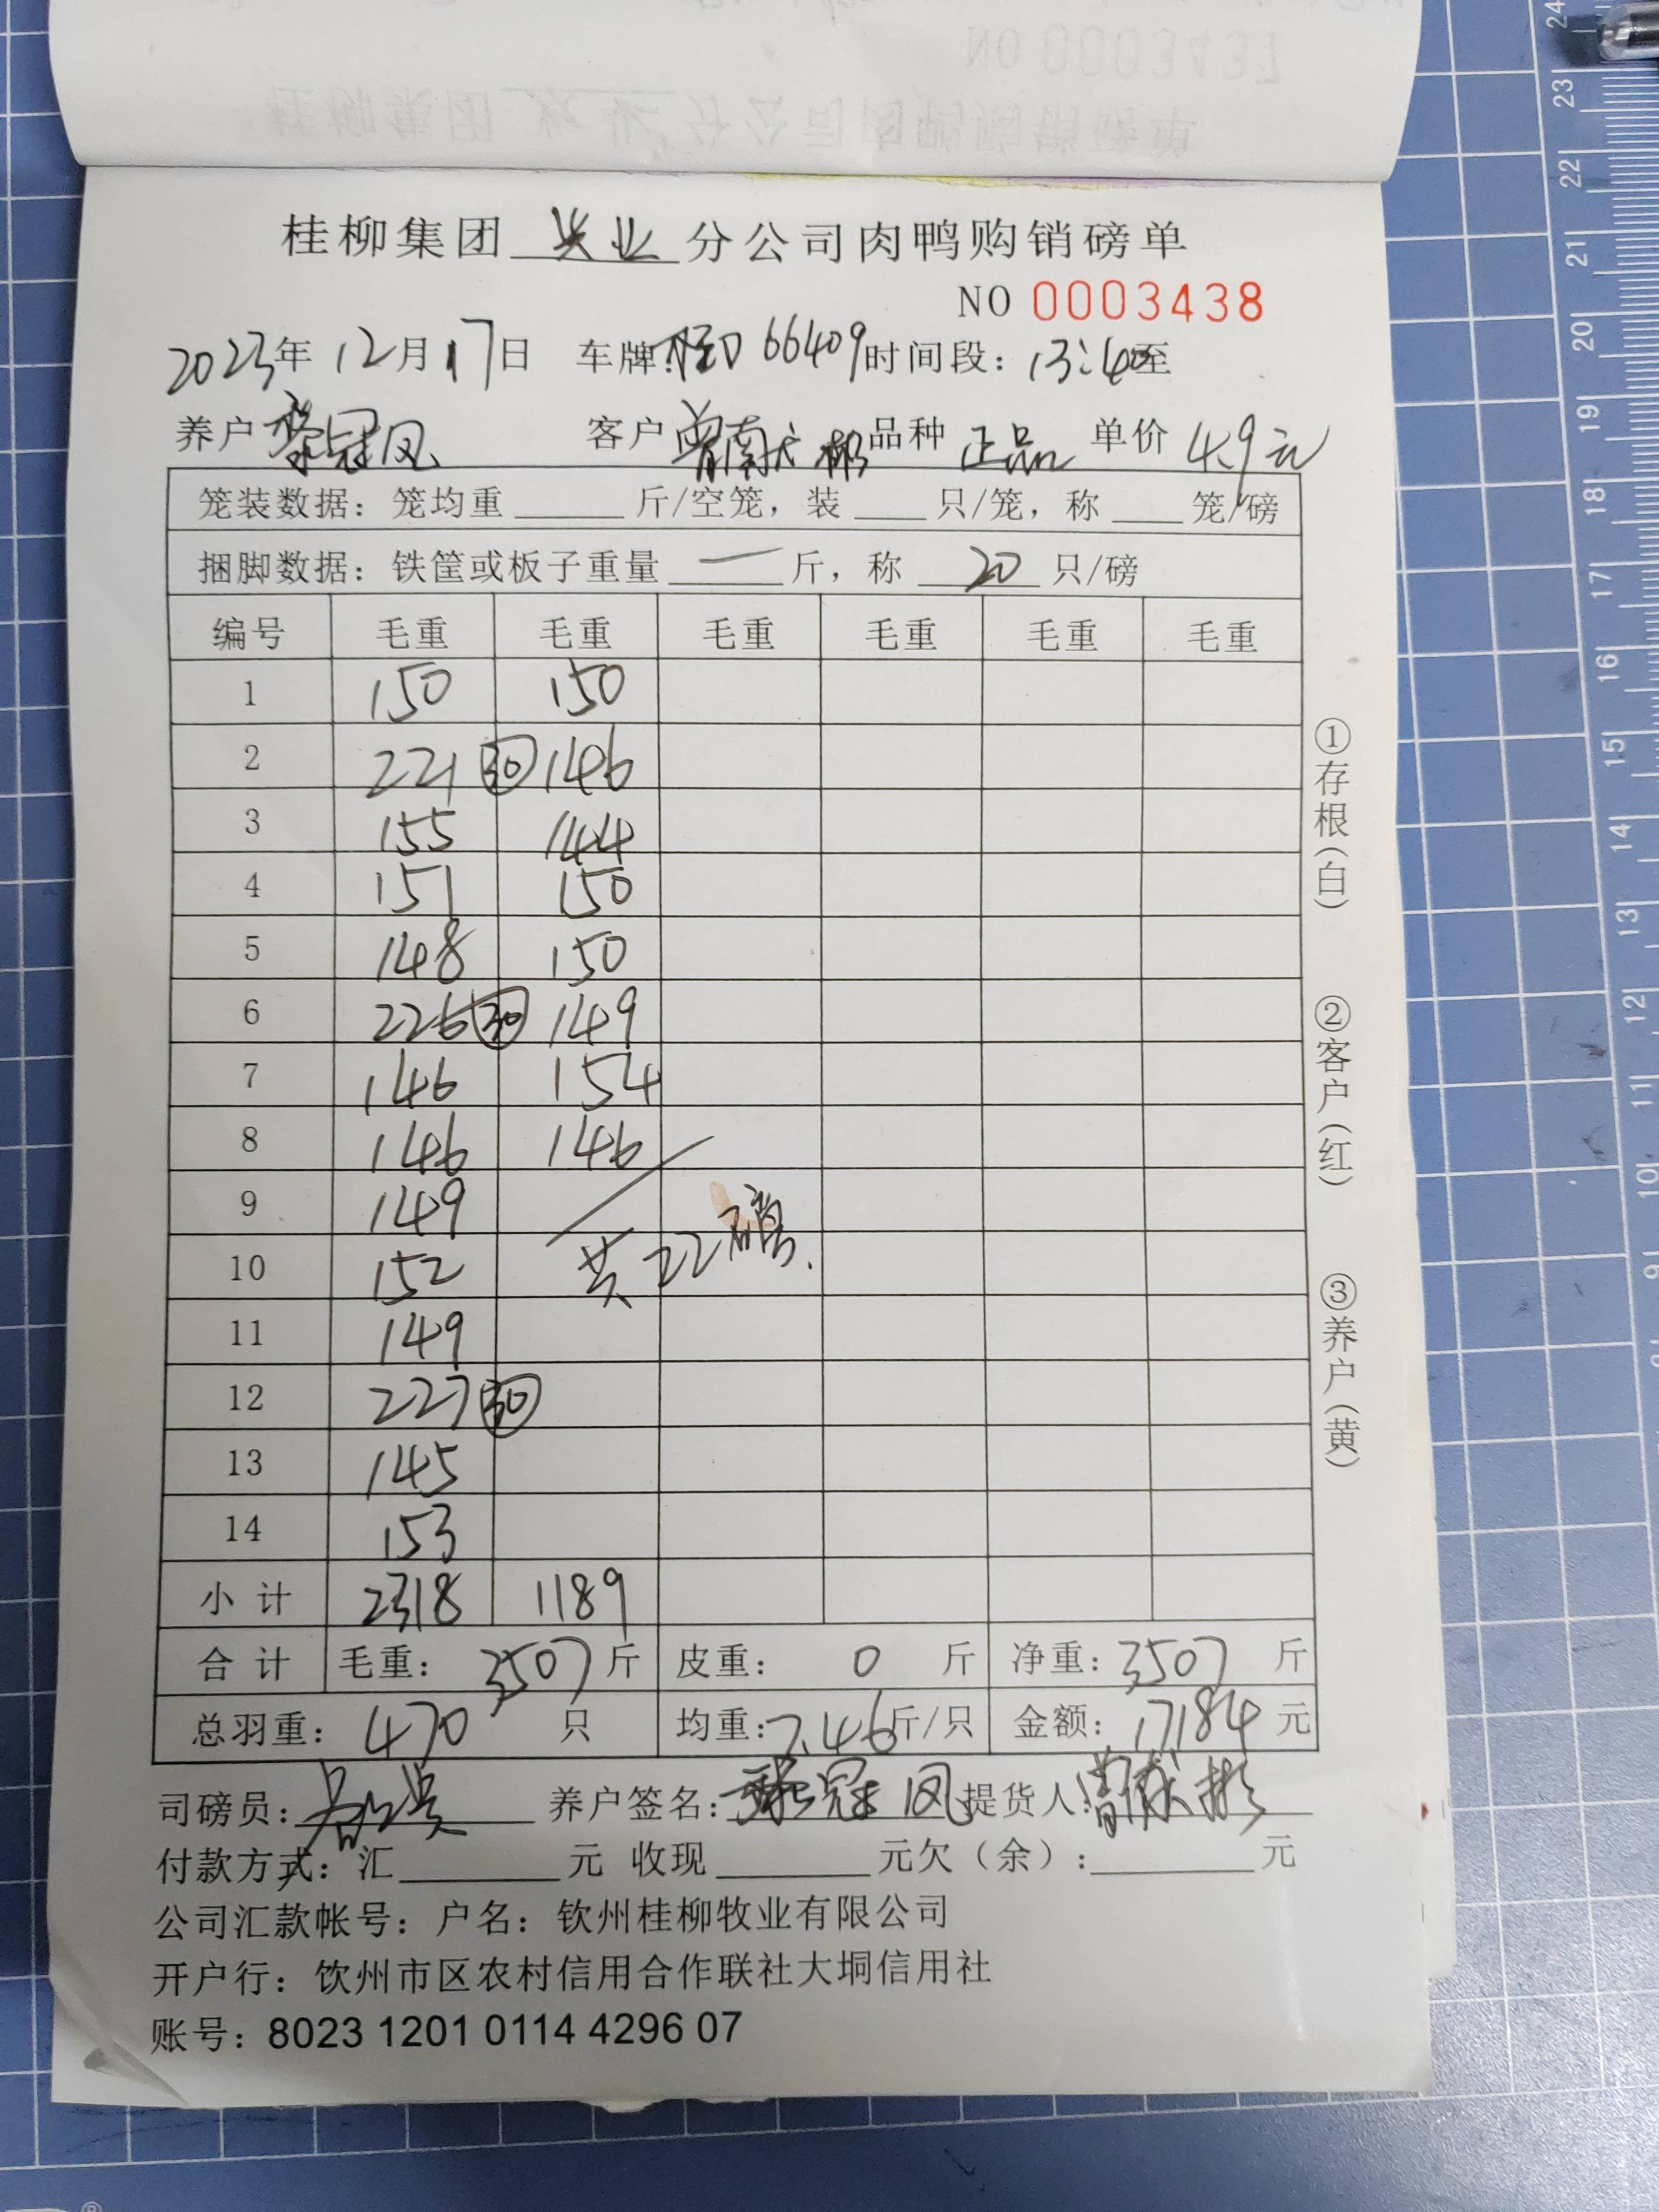 NO 0003437
桂柳集团 兴业 分公司肉鸭购销磅单
桂柳集团 兴业 分公司肉鸭购销磅单
NO 0003438
2023年 12月 17日 车牌: 66409 时间段: 13:40至
养户 冠凤 客户 南 彬 品种 正品 单价 4.9元
笼装数据: 笼均重 斤/空笼, 装 只/笼, 称 笼/磅
捆脚数据: 铁筐或板子重量 一 斤, 称 20 只/磅
编号 毛重 毛重 毛重 毛重 毛重 毛重
1 150 150
2 221 ㉚ 146
3 155 144
4 151 150
5 148 150
6 226 ㉚ 149
7 146 154
8 146 146
9 149
10 152 共22磅.
11 149
12 227 ㉚
13 145
14 153
小计 2318 1189
合计 毛重: 3507 斤 皮重: 0 斤 净重: 3507 斤
总羽重: 470 只 均重: 7.46 斤/只 金额: 17184 元
司磅员: 养户签名: 冠凤 提货人: 彬
付款方式: 汇 元 收现 元欠(余): 元
公司汇款帐号: 户名: 钦州桂柳牧业有限公司
开户行: 钦州市区农村信用合作联社大垌信用社
账号: 8023 1201 0114 4296 07
①存根(白)
②客户(红)
③养户(黄)
24
23
22
21
20
19
18
17
16
15
14
13
12
11
10
9